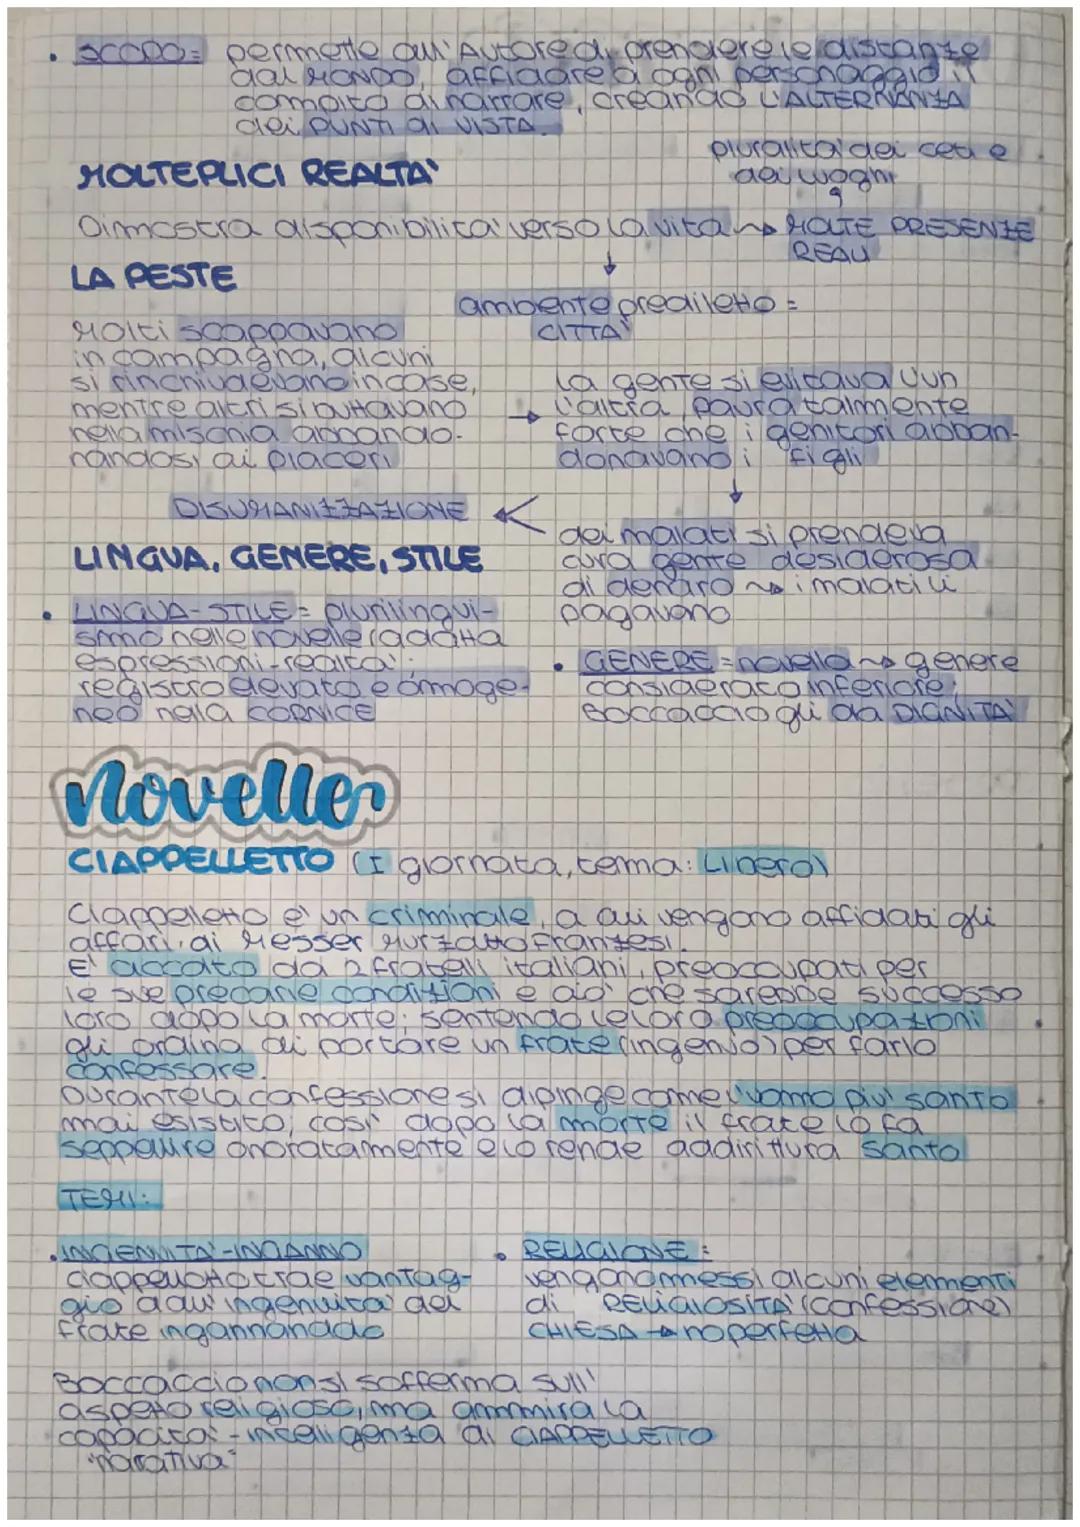 • SCOPO= permette all'Autore di prendere le distanze
dal MONDO, affidare a ogni personaggio il
compito di narrare, creando L'ALTERNANZA
dei PUNTI di VISTA.
MOLTEPLICI REALTA'
pluralita' dei ceti e
dei luoghi
Dimostra disponibilita' verso la vita ~> MOLTE PRESENZE
REALI
↓
ambiente prediletto =
CITTA'
LA PESTE
Molti scappavano
in campagna, alcuni
si rinchiudevano in case,
mentre altri si buttavano
nella mischia abbando-
nandosi ai piaceri
→ La gente si evitava l'un
l'altra, paura talmente
forte che i genitori abban-
donavano i figli
↓
dei malati si prendeva
cura gente desiderosa
di denaro ~> i malati li
pagavano
DISUMANIZZAZIONE <
LINGUA, GENERE, STILE
• LINGUA-STILE= plurilingui-
smo nelle novelle (adatta
espressioni-realta').
registro elevato e omoge-
neo nella CORNICE
• GENERE = novella ~> genere
considerato inferiore;
BOCCACCIO gli da DIGNITA'
Novelle
CIAPPELLETTO (I giornata, tema: Libero)
Ciappelletto e' un criminale, a cui vengono affidati gli
affari di Messer Murzatto Franzesi.
E' accolto da 2 fratelli italiani, preoccupati per
le sue precarie condizioni e cio' che sarebbe successo
loro dopo la morte; sentendo le loro preoccupazioni
gli ordina di portare un frate (ingenuo) per farlo
confessare.
Durante la confessione si dipinge come l'uomo piu' santo
mai esistito, cosi' dopo la morte il frate lo fa
seppellire onoratamente e lo rende addirittura santo
TEMI:
• INGENUITA'-INGANNO
ciappelletto trae vantag-
gio dall'ingenuita' del
frate ingannandolo
• RELIGIONE:
vengono messi alcuni elementi
di RELIGIOSITA' (confessione)
CHIESA → no perfetta
BOCCACCIO non si sofferma sull'
aspetto religioso, ma ammira la
capacita' - intelligenza di CIAPPELLETTO
"narrativa"